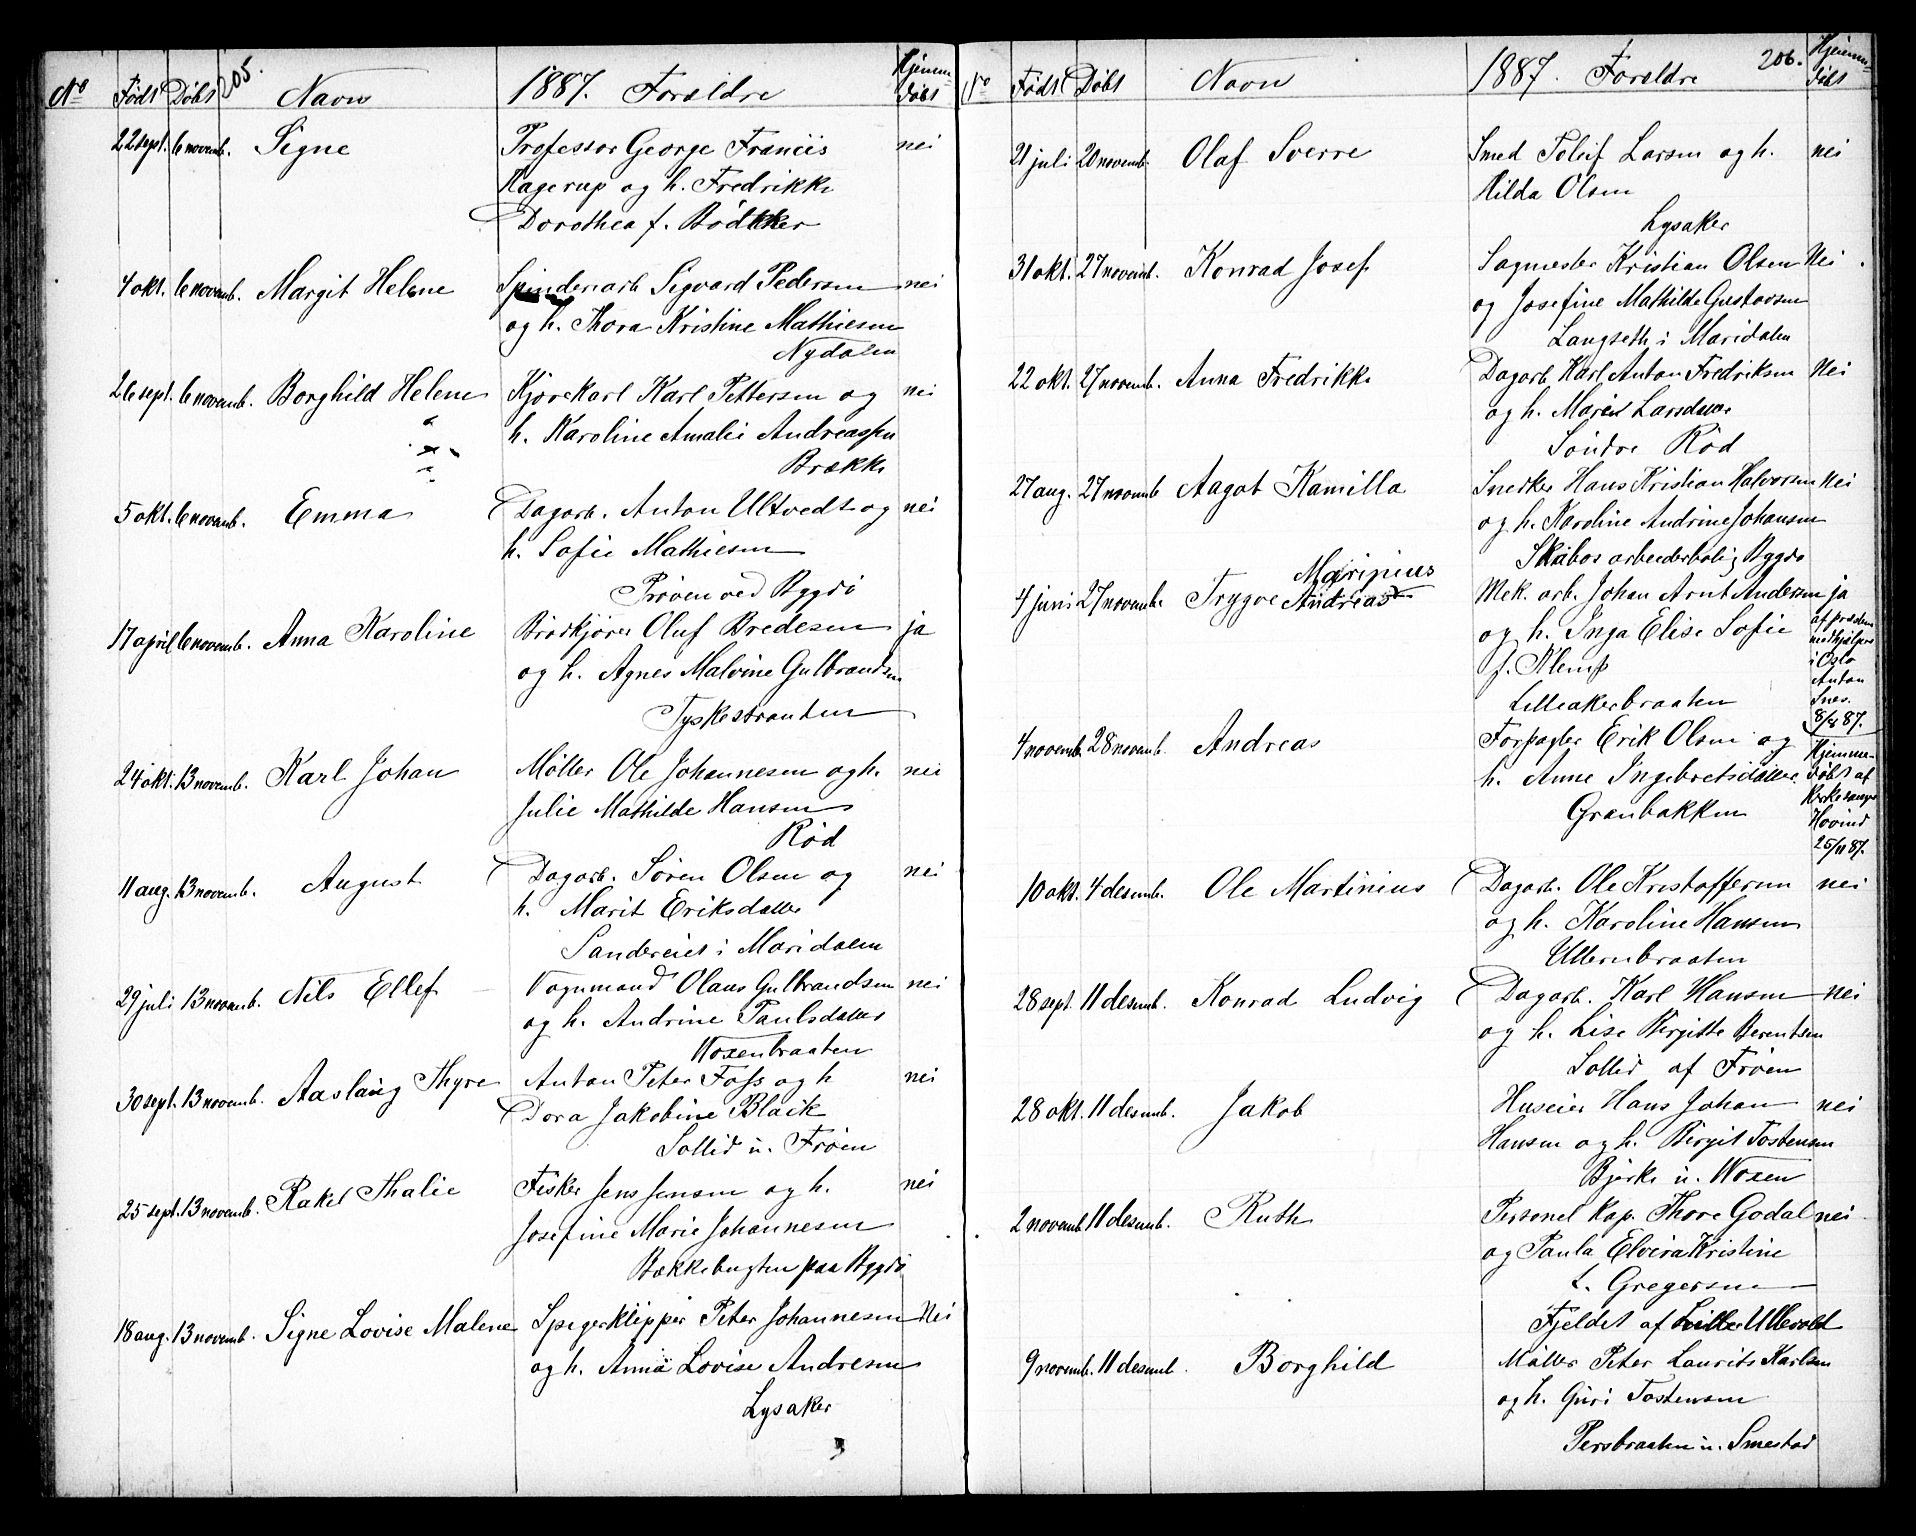 No Født Døbt 205. Navn 1887. Forældre Hjemmedøbt
22 sept. 6 novemb. Signe Professor George Franciis nei
Hagerup og h. Fredrikke
Dorothea f. Bødtkker
4 okt. 6 novemb. Margit Helene Spinderiarb Sigvard Pedersen nei
og h. Thora Kristine Mathiesen
Nydalen
26 sept. 6 novemb. Borghild Helene Kjørekarl Karl Pettersen og nei
h. Karoline Amalie Andreassen
Brække
5 okt. 6 novemb. Emma Dagarb. Anton Ultvedt og nei
h. Sofie Mathiesen
Prøven ved Bygdø
17 april 6 novemb. Anna Karoline Brødkjører Oluf Bredesen ja
og h. Agnes Malvine Gulbrandsen
Tyskestranden
24 okt. 13 novemb. Karl Johan Møller Ole Johannesen og h. nei
Julie Mathilde Hansen
Rød
11 aug. 13 novemb. August Dagarb. Søren Olsen og nei
h. Marit Eriksdatter
Sandereiet i Maridalen
29 juli 13 novemb. Nils Ellef Vognmand Olaus Gulbrandsen nei
og h. Andrine Paulsdatter
Voxenbraaten
30 sept. 13 novemb. Aaslaug Thyre Anton Peter Foss og h nei
Dora Jakobine Blaik
Sollid u. Frøen
25 sept. 13 novemb. Rakel Thalie Fisker Jens Jensen og h. nei
Josefine Marie Johannesen
Bækkebugten paa Bygdø
18 aug. 13 novemb. Signe Lovise Malene Spigerklipper Peter Johannesen Nei
og h. Anna Lovise Andresen
Lysaker
No Født Døbt Navn 1887. Forældre 206. Hjemmedøbt
21 juli 20 novemb. Olaf Sverre Smed Toleif Larsen og h. nei
Hilda Olsen
Lysaker
31 okt. 27 novemb. Konrad Josef Sagmester Kristian Olsen Nei
og Josefine Mathilde Gustavsen
Langseth i Maridalen
22 okt. 27 novemb. Anna Fredrikke Dagarb. Karl Anton Fredriksen Nei
og h. Maren Larsdatter
Søndre Rød
27 aug. 27 novemb Aagot Kamilla Snedker Hans Kristian Halvorsen Nei
og h. Karoline Andrine Johansen
Skabos arbeiderbolig Bygdø
Marinius
4 juni 27 novemb. Trygve Andreas Mek. arb. Johan Arnt Andersen ja
og h. Inga Elise Sofie af præsten
f. Klemp medhjælper
i Oslo
Lilleakerbraaten Anton
Snes.
8/8 87.
4 novemb. 28 novemb. Andreas Forpagter Erik Olsen og Hjemme-
h. Anne Ingebretsdatter døbt af
Granbakken Kirkesanger
Hovind
25/11 87.
10 okt. 4 desemb. Ole Martinius Dagarb. Ole Kristoffersen nei
og h. Karoline Hansen
Ullernbraaten
28 sept. 11 desemb. Konrad Ludvig Dagarb. Karl Hansen nei
og h. Lise Birgitte Berentsen
Sollid af Frøen
28 okt. 11 desemb. Jakob Huseier Hans Johan nei
Hansen og h. Birgit Tostensen
Bjerke u. Voxen
2 novemb. 11 desemb. Ruth Personel kap. Thore Godal nei
og Paula Elvira Kristine
f. Gregersen
Fjeldet af Lille Ullevold
9 novemb. 11 desemb. Borghild Møller Peter Laurits Karlsen
og h. Guri Tostensen
Persbraaten u. Smestad